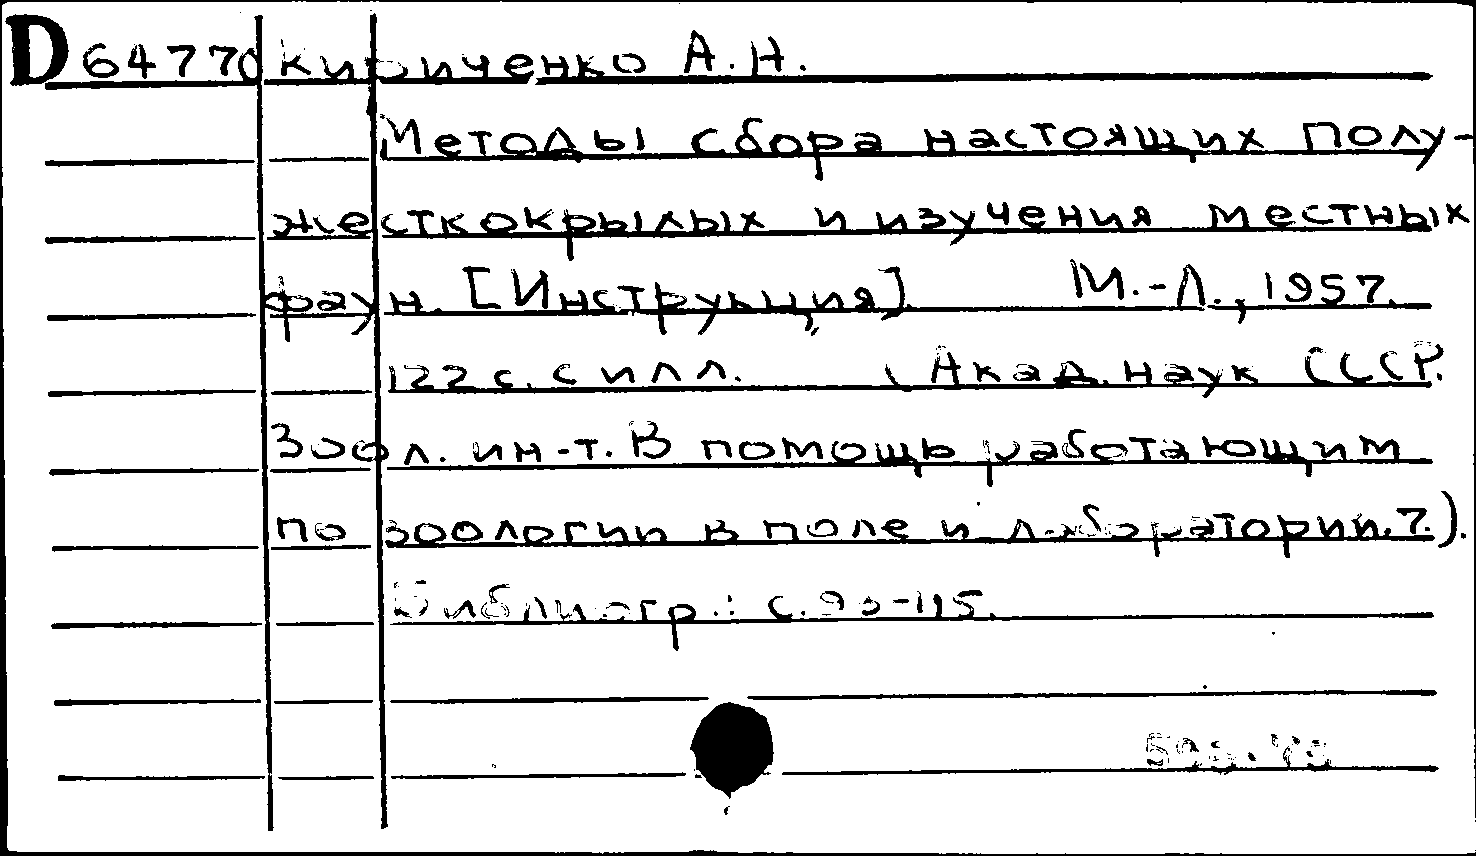 D 64770 Кириченко А.Н.
Методы сбора настоящих полу-
жесткокрылых и изучения местных
фаун. [Инструкция] М.-Л., 1957.
122 с. с илл. (Акад. наук СССР.
Зоол. ин-т. В помощь работающим
по зоологии в поле и лаборатории. 7.).
Библиогр.: